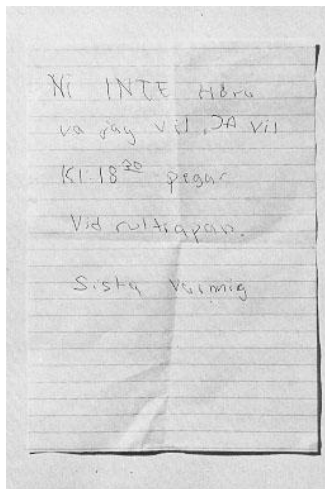 Ni INTE Höra
va jag vil, JA vil
Kl: 18 30 pegar
Vid rultrapan.
Sista varmig